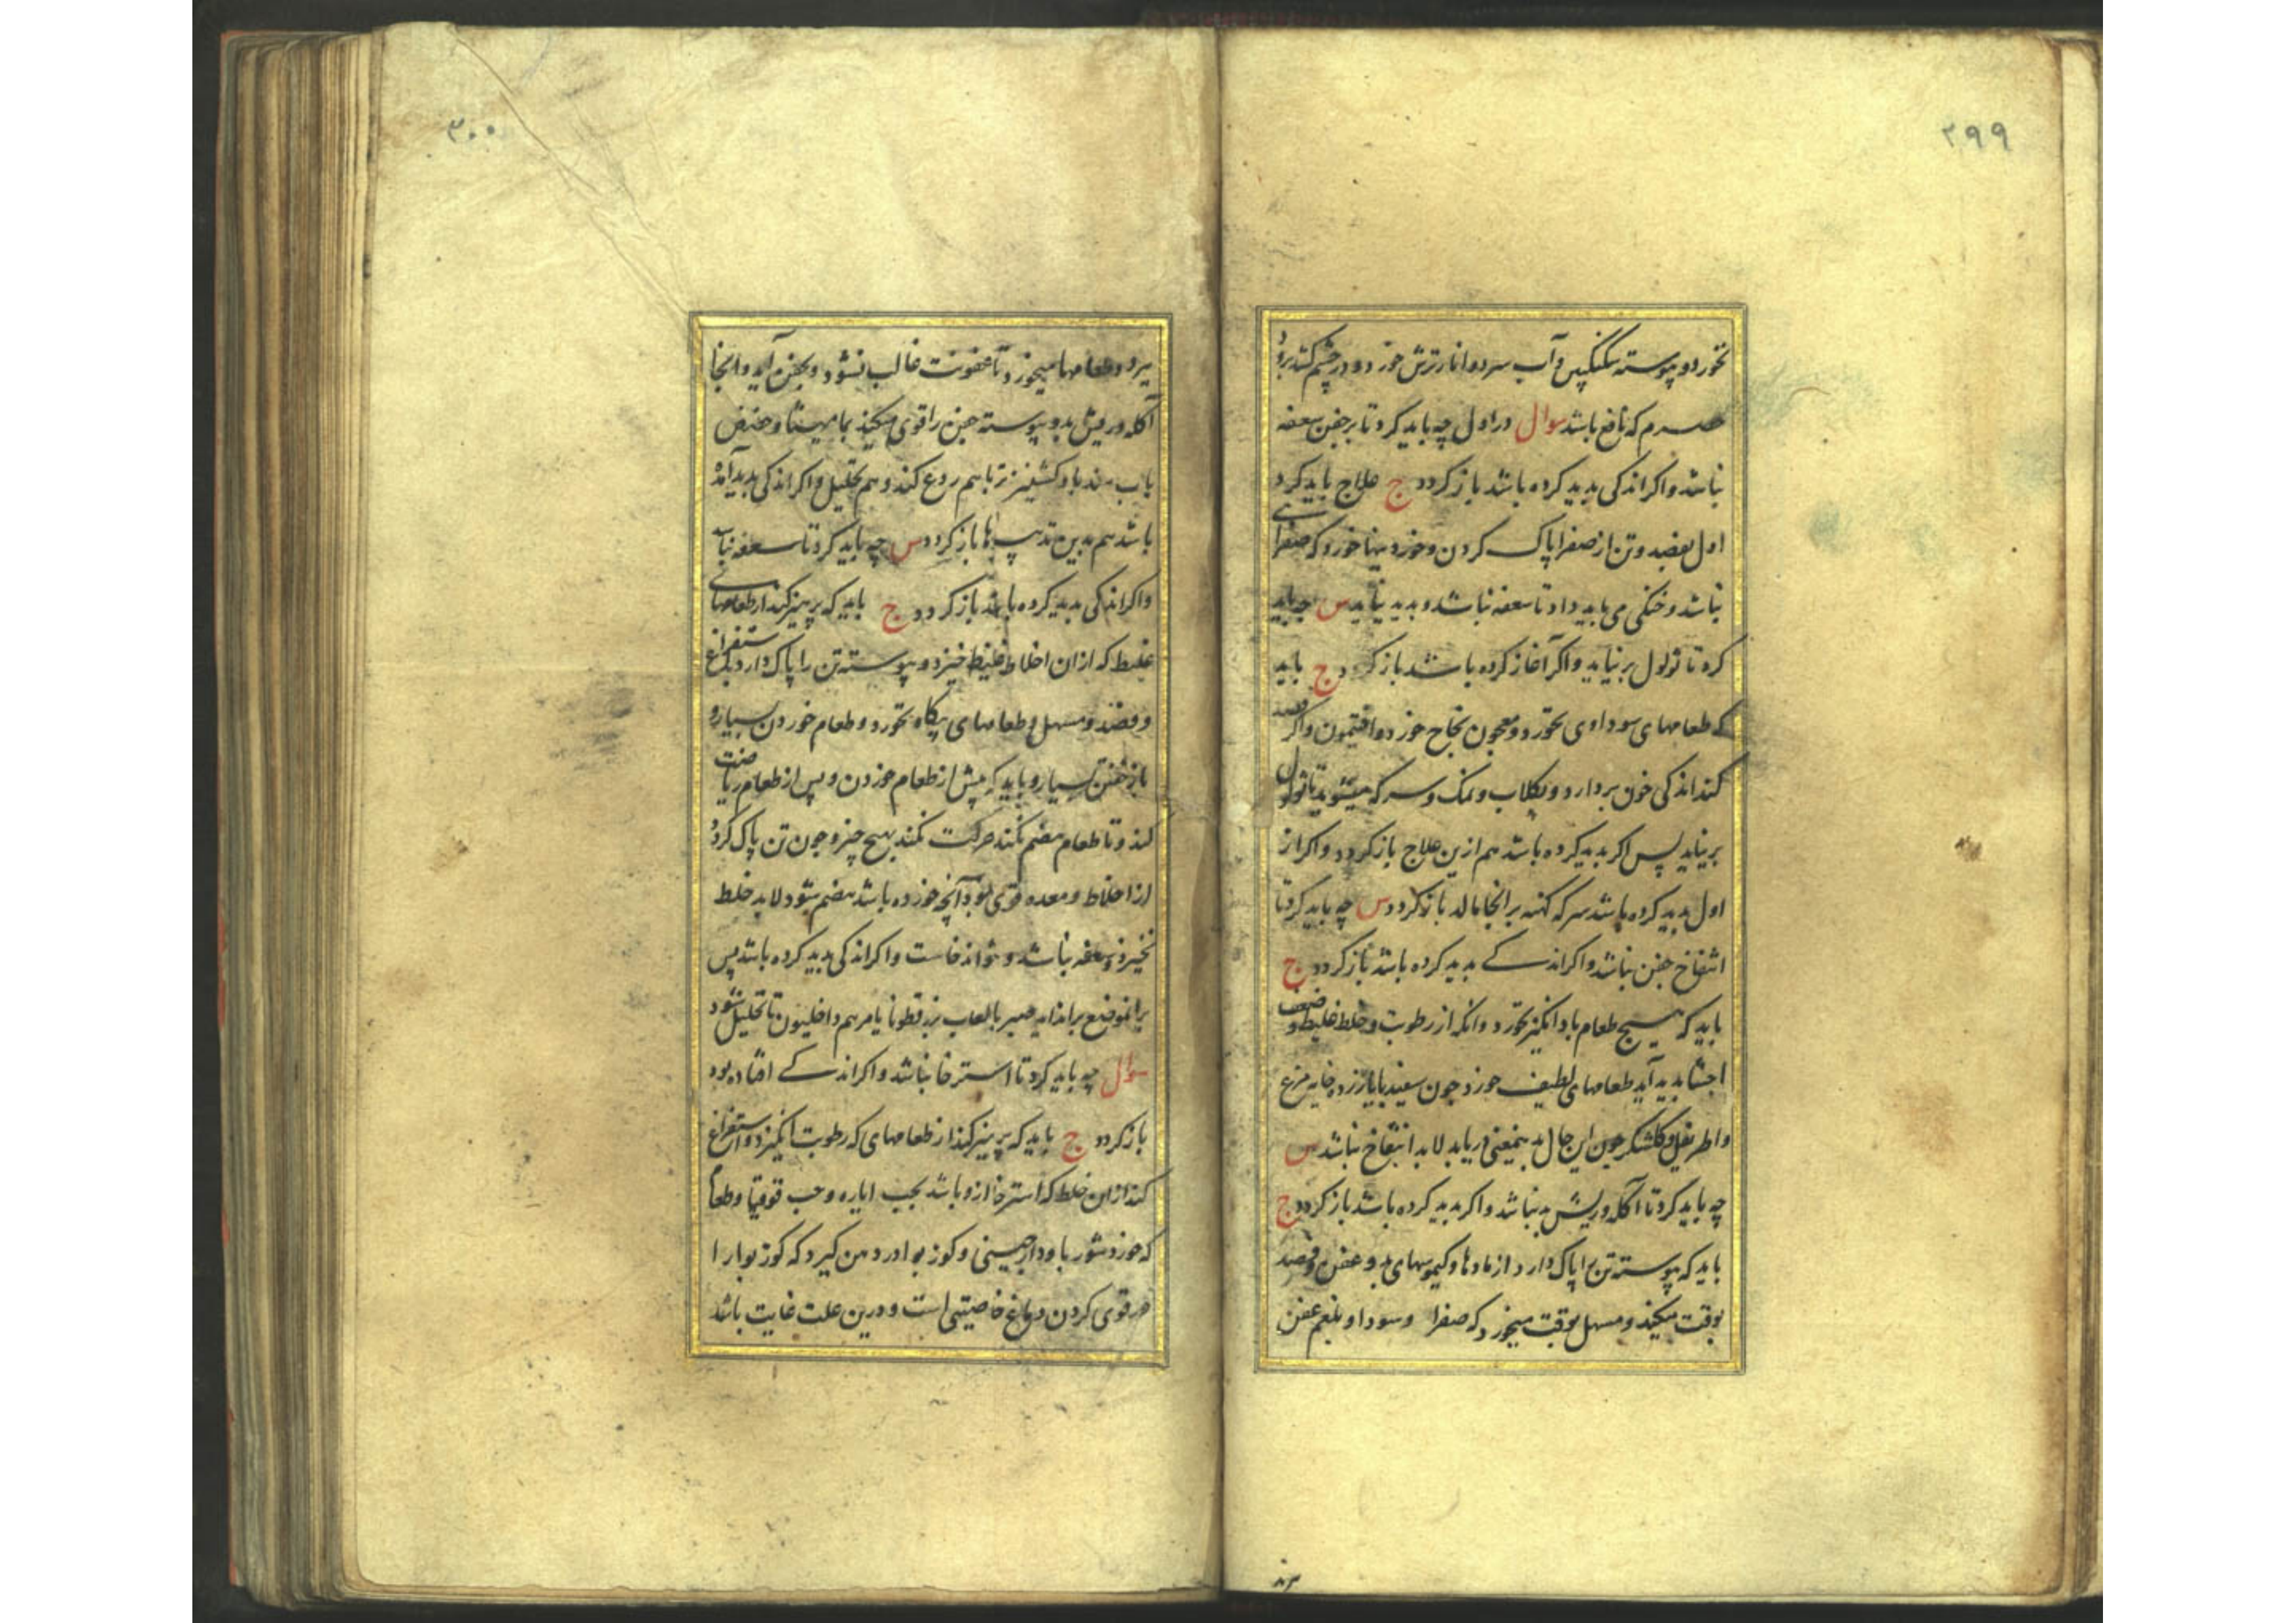 ۲۹۹
نخورد و پیوسته سکنکبین و آب سرد و انار ترش خورد و در چشم کشد برود
حصرم که نافع باشد سوال در اول چه باید کرد تا بر جفن سعفه
نباشد و اکر اندکی بدید کرده باشد باز کردد ج علاج باید کرد
اول بفصد و تن از صفرا پاک کردن و خوردنیها خورد که صفرای
نباشد و خنکی می باید داد تا سعفه نباشد و بدید نیاید س چه باید
کرد تا ثولول بر نیاید و اکر آغاز کرده باشد باز کردد ج باید
که طعامهای سوداوی نخورد و معجون نجاح خورد و افتیمون و اکر فصد
کند اندکی خون بردارد و بکلاب و نمک و سرکه میشوید تا ثولول
بر نیاید پس اکر بدید کرده باشد هم ازین علاج باز کردد و اکر از
اول بدید کرده باشد سرکه کهنه بر انجا مالد باز کردد س چه باید کرد تا
انتفاخ جفن نباشد و اکر اندکے بدید کرده باشد باز کردد ج
باید که هیچ طعام باد انکیز نخورد و انکه از رطوبت و خلط غلیظ و ضعف
احشا بدید آید طعامهای لطیف خورد چون سفیدبا یا زرده خایه مرغ
و اطریفل و کلشکر چون این حال بدینمعنی دریابد لا بد انتفاخ نباشد س
چه باید کرد تا آکله و ریش بد نباشد و اکر بدید کرده باشد باز کردد ج
باید که پیوسته تن را پاک دارد از مادها و کیموسهای بد و عفن و فصد
بوقت میکند و مسهل بوقت میخورد که صفرا و سودا و بلغم عفن
۳۰۰
ببرد و طعامها میخورد تا عفونت غالب نشود و بجفن آید و انجا
آکله و ریش بد و پیوسته جفن را قوی میکند بمامیثا و حضض
باب هندبا و کشنیز تر تا هم ردع کند و هم تحلیل و اکر اندکی بدید آمده
باشد هم بدین تدبیرها باز کردد س چه باید کرد تا سعفه نباشد
و اکر اندکی بدید کرده باشد باز کردد ج باید که پرهیز کند از طعامهای
غلیظ که از ان اخلاط غلیظ خیزد و پیوسته تن را پاک دارد باستفراغ
و فصد و مسهل و طعامهای بیکاه نخورد و طعام خوردن بسیار و
باز خفتن بسیار و باید که پیش از طعام خوردن و پس از طعام ریاضت
کند و تا طعام هضم نکند حرکت نکند بهیچ چیز و چون تن پاک کرد
از اخلاط و معده قوی بود آنچه خورده باشد هضم شود لا بد خلط
نخیزد و سعفه نباشد و نتواند خاست و اکر اندکی بدید کرده باشد پس
بر انموضع بر انداید صبر بالعاب بزر قطونا یا مرهم داخلیون تا تحلیل شود
سوال چه باید کرد تا استرخا نباشد و اکر اندکے افتاده بود
باز کردد ج باید که پرهیز کند از طعامهای که رطوبت انکیزد و استفراغ
کند از ان خلط که استرخا ازو باشد بحب ایاره و حب قوقیا و طعام
که خورد شور با و دارچینی و کوز بوا در دهن کیرد که کوز بوا را
در قوی کردن دماغ خاصیتی است و درین علت غایت باشد